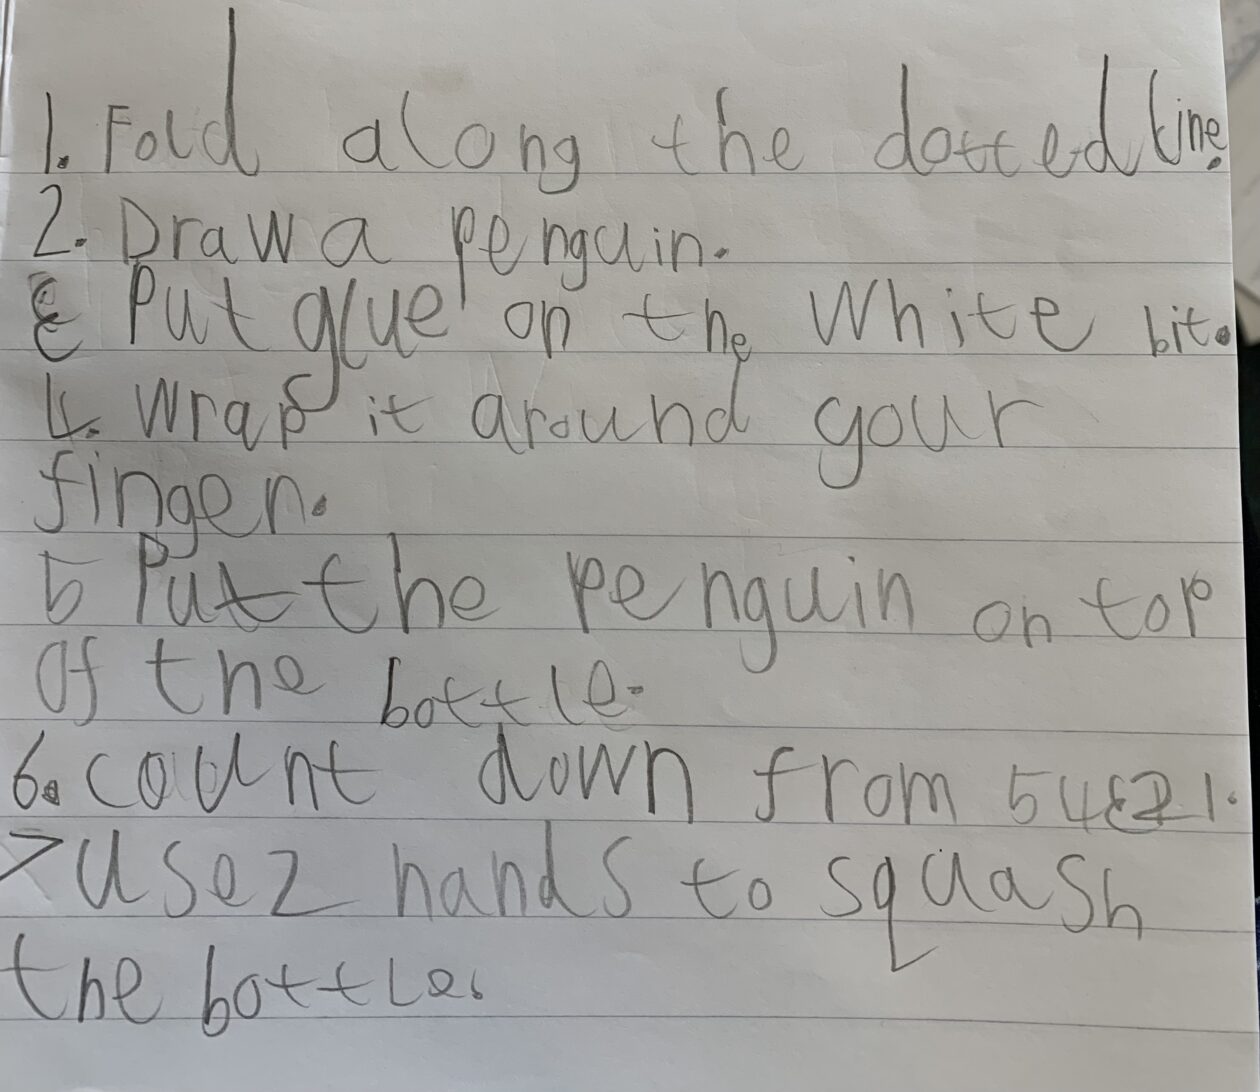 1. Fold along the dotted line.
2. Draw a penguin.
3 Put glue on the White bit.
4. Wrap it around your
finger.
5 Put the penguin on top
of the bottle.
6. count down from 54321.
7 Use 2 hands to squash
the bottle.